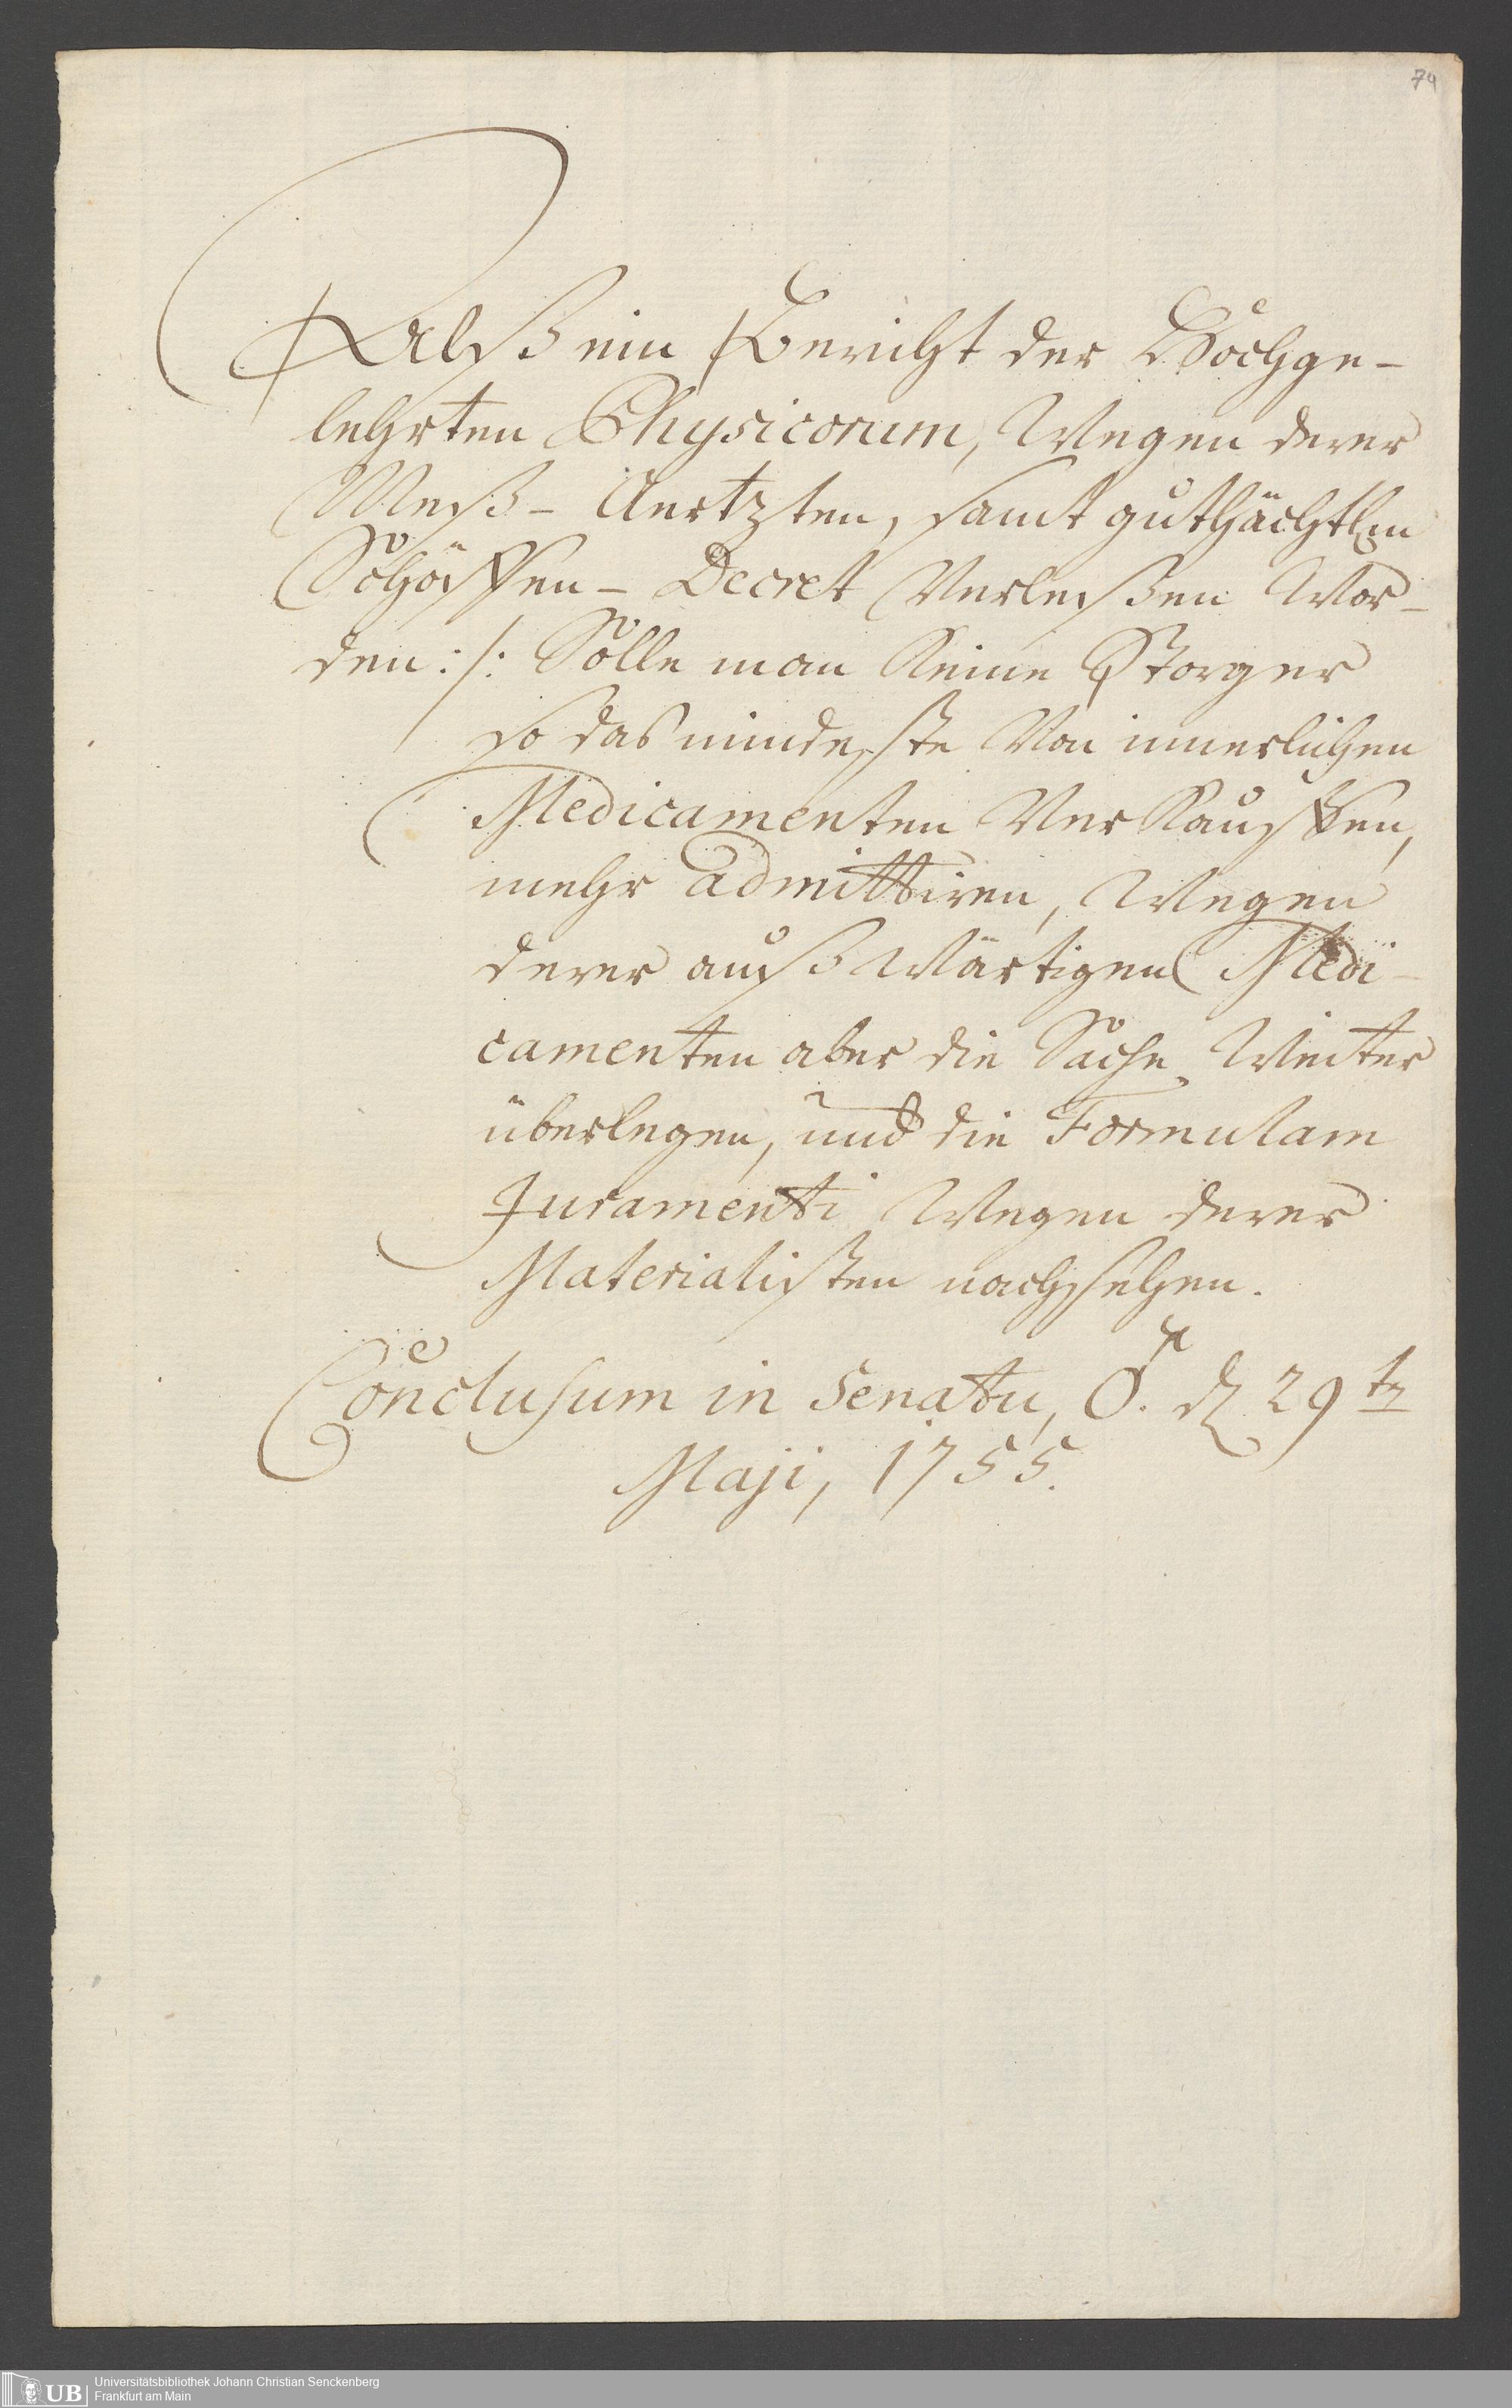 74
Alß ein Bericht der Hochge-
lehrten Physicorum, Wegen derer
Meß- Aertzten, samt guthächtl[en]
Schöffen- Decret Verleßen Wor-
den :/: Solle man Keine Storger
so das mindeste Von innerlichen
Medicamenten Verkauffen,
mehr admittiren, Wegen
derer außwärtigen Medi-
camenten aber die Sache Weiter
überlegen, und die Formulam
Juramenti Wegen derer
Materialisten nachsehen.
Conclusum in Senatu, d. 29
Maji, 1755.
UB
Universitätsbibliothek Johann Christian Senckenberg
Frankfurt am Main